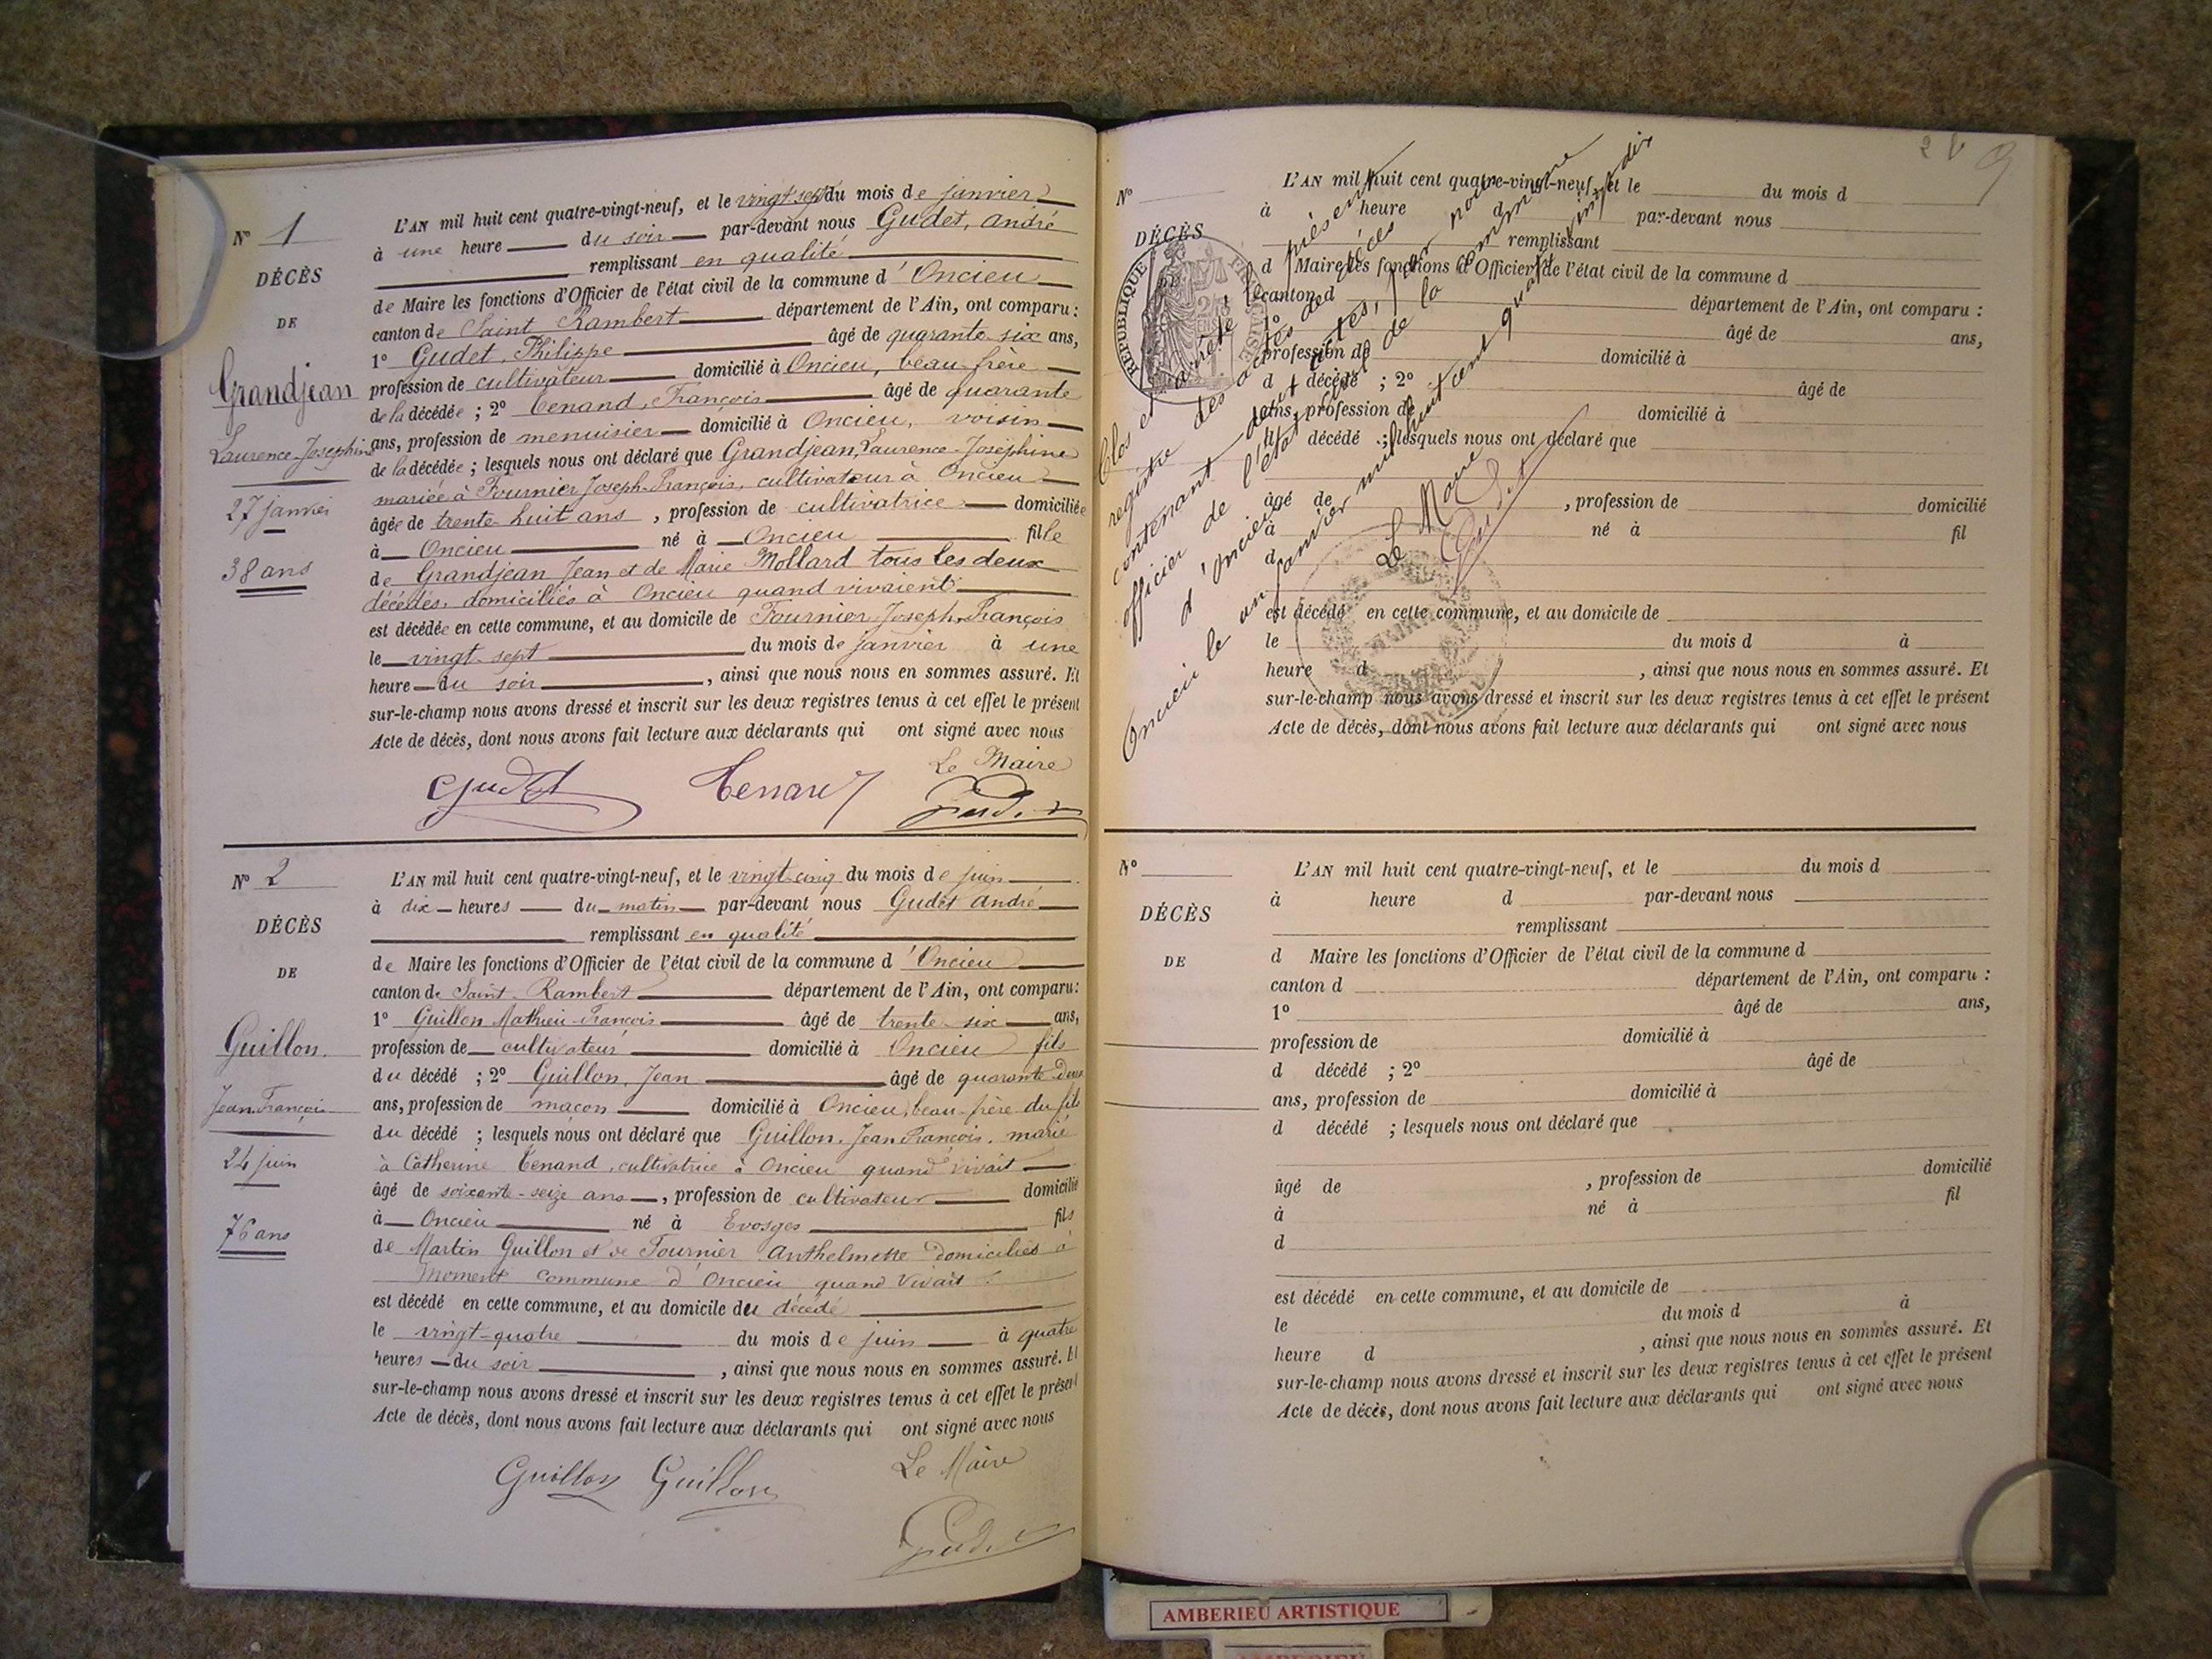 N° 1
DÉCÈS
DE
Grandjean
Laurence-Josephine
27 janvier
38 ans
L'AN mil huit cent quatre-vingt-neuf, et le vingt sept du mois de janvier
à une heure du soir par-devant nous Gudet, André
remplissant en qualité
de Maire les fonctions d'Officier de l'état civil de la commune d'Oncieu
canton de Saint Rambert département de l'Ain, ont comparu :
1° Gudet, Philippe âgé de quarante six ans,
profession de cultivateur domicilié à Oncieu, beau-frère
de la décédée ; 2° Tenand, François âgé de quarante
ans, profession de menuisier domicilié à Oncieu, voisin
de la décédée ; lesquels nous ont déclaré que Grandjean, Laurence Joséphine
mariée à Fournier Joseph-François, cultivateur à Oncieu
âgée de trente-huit ans, profession de cultivatrice domiciliée
à Oncieu né à Oncieu fille
de Grandjean Jean et de Marie Mollard tous les deux
décédés, domiciliés à Oncieu quand vivaient
est décédée en cette commune, et au domicile de Fournier Joseph-François
le vingt-sept du mois de janvier à une
heure du soir, ainsi que nous nous en sommes assuré. Et
sur-le-champ nous avons dressé et inscrit sur les deux registres tenus à cet effet le présent
Acte de décès, dont nous avons fait lecture aux déclarants qui ont signé avec nous
Le Maire
Gudet Tenand Gudet
N° 2
DÉCÈS
DE
Guillon.
Jean François
24 juin
76 ans
L'AN mil huit cent quatre-vingt-neuf, et le vingt-cinq du mois de juin
à dix heures du matin par-devant nous Gudet André
remplissant en qualité
de Maire les fonctions d'Officier de l'état civil de la commune d'Oncieu
canton de Saint-Rambert département de l'Ain, ont comparu :
1° Guillon Mathieu-François âgé de trente-six ans,
profession de cultivateur domicilié à Oncieu fils
du décédé ; 2° Guillon, Jean âgé de quarante deux
ans, profession de maçon domicilié à Oncieu, beau-frère du fils
du décédé ; lesquels nous ont déclaré que Guillon, Jean François, marié
à Catherine Tenand, cultivatrice à Oncieu quand vivait
âgé de soixante-seize ans, profession de cultivateur domicilié
à Oncieu né à Evosges fils
de Martin Guillon et de Fournier Anthelmette domiciliés à
Moment commune d'Oncieu quand vivait
est décédé en cette commune, et au domicile du décédé
le vingt-quatre du mois de juin à quatre
heures du soir, ainsi que nous nous en sommes assuré. Et
sur-le-champ nous avons dressé et inscrit sur les deux registres tenus à cet effet le présent
Acte de décès, dont nous avons fait lecture aux déclarants qui ont signé avec nous
Guillon Guillon Le Maire
Gudet
9
N°
DÉCÈS
RÉPUBLIQUE FRANÇAISE
L'AN mil huit cent quatre-vingt-neuf, et le du mois d
à heure d par-devant nous
remplissant
d Maire les fonctions d'Officier de l'état civil de la commune d
canton d département de l'Ain, ont comparu :
1° âgé de ans,
profession de domicilié à
d décédé ; 2° âgé de
ans, profession de domicilié à
d décédé ; lesquels nous ont déclaré que
âgé de , profession de domicilié
à né à fil
d
est décédé en cette commune, et au domicile de
le du mois d à
heure d , ainsi que nous nous en sommes assuré. Et
sur-le-champ nous avons dressé et inscrit sur les deux registres tenus à cet effet le présent
Acte de décès, dont nous avons fait lecture aux déclarants qui ont signé avec nous
Clos et arrêté le présent
registre des actes de décès
contenant deux actes, par nous
officier de l'état civil de la commune
d'Oncieu
Oncieu le un janvier mil huit cent quatre vingt dix
Le Maire
Gudet
N°
DÉCÈS
DE
L'AN mil huit cent quatre-vingt-neuf, et le du mois d
à heure d par-devant nous
remplissant
d Maire les fonctions d'Officier de l'état civil de la commune d
canton d département de l'Ain, ont comparu :
1° âgé de ans,
profession de domicilié à
d décédé ; 2° âgé de
ans, profession de domicilié à
d décédé ; lesquels nous ont déclaré que
âgé de , profession de domicilié
à né à fil
d
est décédé en cette commune, et au domicile de
le du mois d à
heure d , ainsi que nous nous en sommes assuré. Et
sur-le-champ nous avons dressé et inscrit sur les deux registres tenus à cet effet le présent
Acte de décès, dont nous avons fait lecture aux déclarants qui ont signé avec nous
AMBERIEU ARTISTIQUE
AMBERIEU